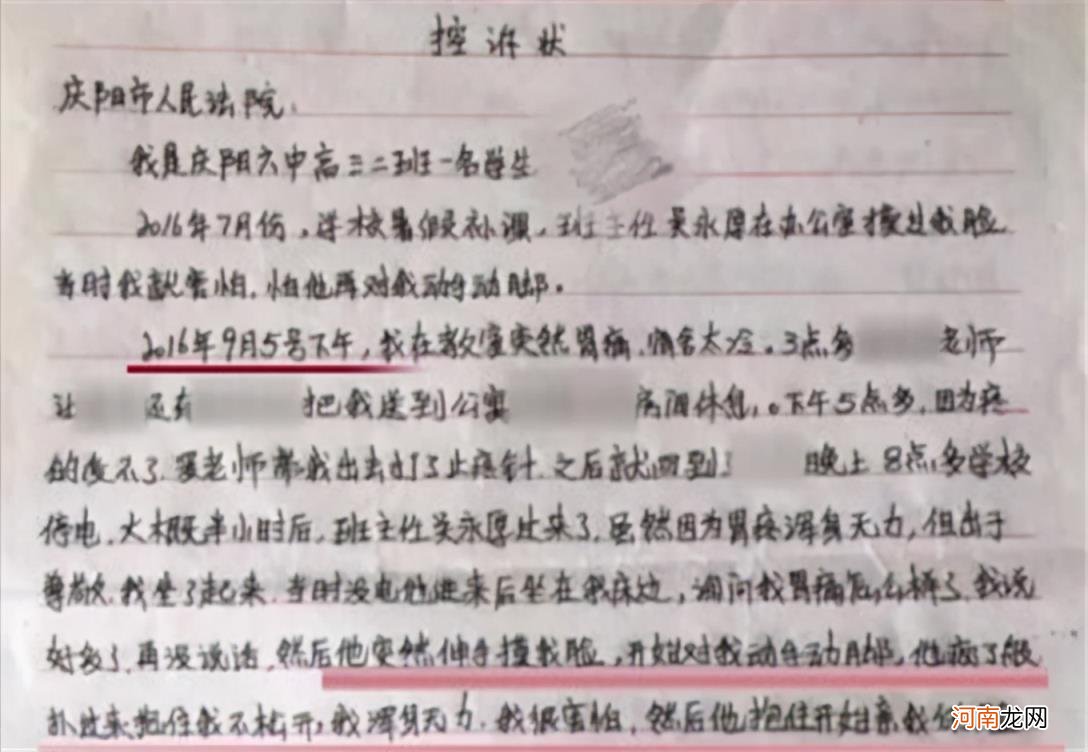 控诉状
庆阳市人民法院：
我是庆阳六中高三二班一名学生
2016年7月份，学校暑假补课，班主任吴永厚在办公室摸过我脸
当时我就害怕，怕他再对我动手动脚。
2016年9月5号下午，我在教室突然胃痛，宿舍太冷。3点多 老师
让 还有 把我送到公寓 房间休息，。下午5点多，因为疼
的受不了，罗老师带我出去打了止疼针，之后就回到 晚上8点多学校
停电，大概半小时后，班主任吴永厚过来了，虽然因为胃疼浑身无力，但出于
尊敬，我坐了起来，当时没电他进来后坐在我床边，询问我胃痛怎么样了，我说
好多了，再没说话，然后他突然伸手摸我脸，开始对我动手动脚，他疯了般
扑过来抱住我不松开，我浑身无力，我很害怕，然后他抱住开始亲我
河南龙网